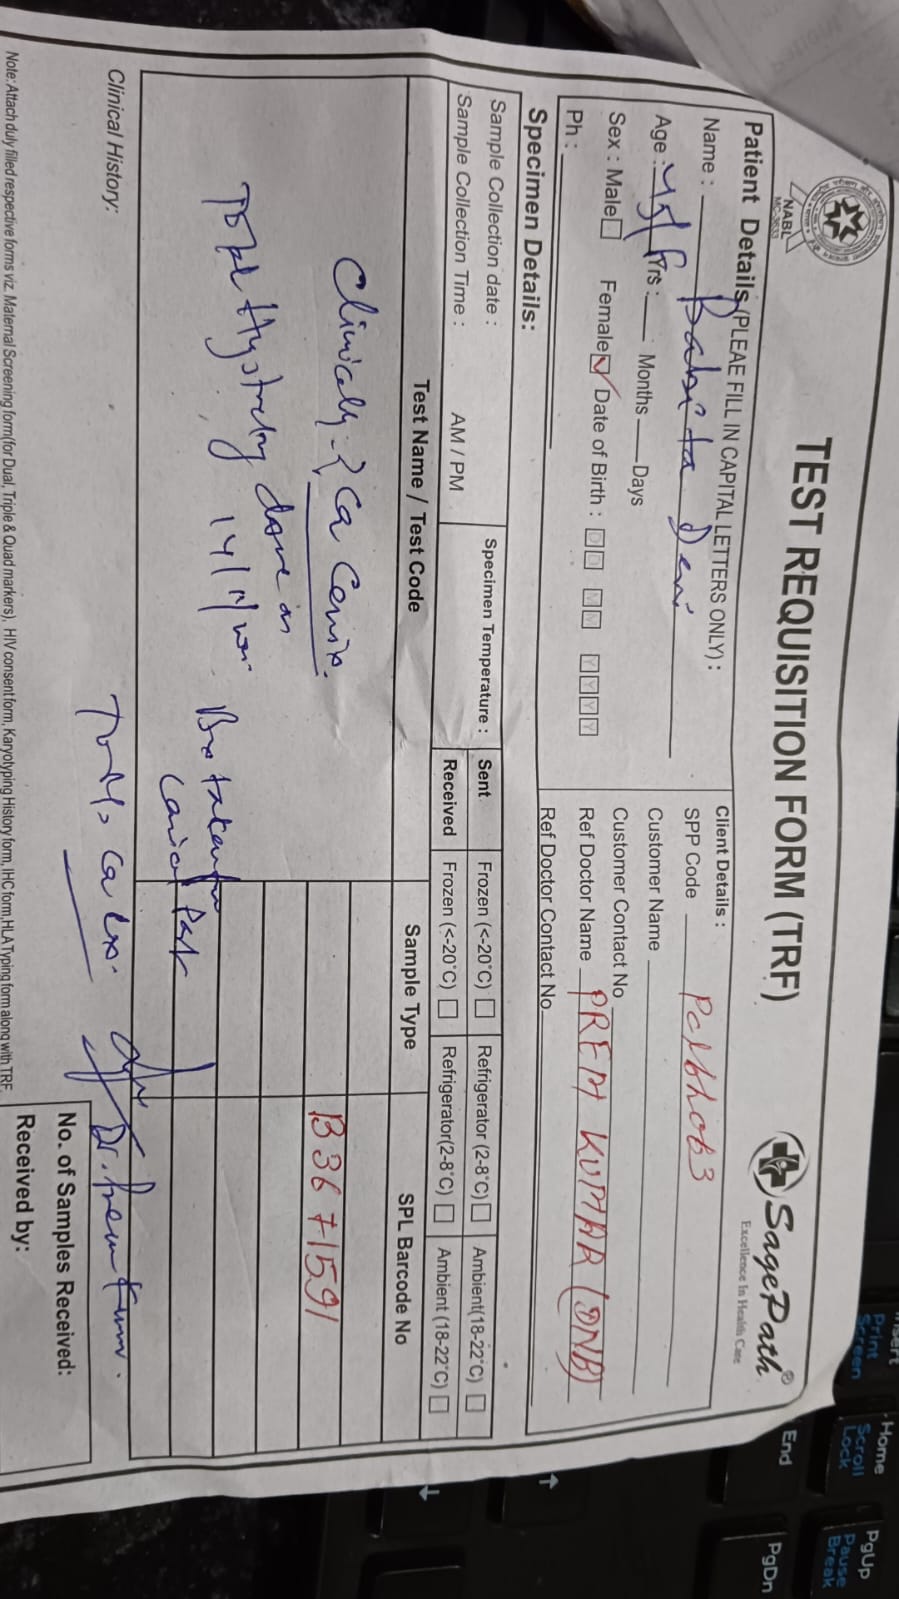 NABL
MC-3633
TEST REQUISITION FORM (TRF)
SagePath®
Excellence In Health Care
Patient Details (PLEAE FILL IN CAPITAL LETTERS ONLY) :
Name : Babita Devi
Age : Yrs : Months Days
Sex : Male Female ✓ Date of Birth : D D M M Y Y Y Y
Ph :
Client Details :
SPP Code
Customer Name
Customer Contact No
Ref Doctor Name PREM KUMAR (DNB)
Ref Doctor Contact No
Specimen Details:
Sample Collection date :
Sample Collection Time : AM / PM
Specimen Temperature :
Sent Frozen (<-20°C) Refrigerator (2-8°C) Ambient(18-22°C)
Received Frozen (<-20°C) Refrigerator(2-8°C) Ambient (18-22°C)
Test Name / Test Code Sample Type SPL Barcode No
Clinically - ? Ca Cervix.
B3671591
Total done on
Clinical History:
Dr. Prem Kumar.
No. of Samples Received:
Received by:
Note: Attach duly filled respective forms viz. Maternal Screening form(for Dual, Triple & Quad markers), HIV consent form, Karyotyping History form, IHC form, HLA Typing form along with TRF.
Print Screen
Home
Scroll Lock
PgUp
Pause Break
End
PgDn